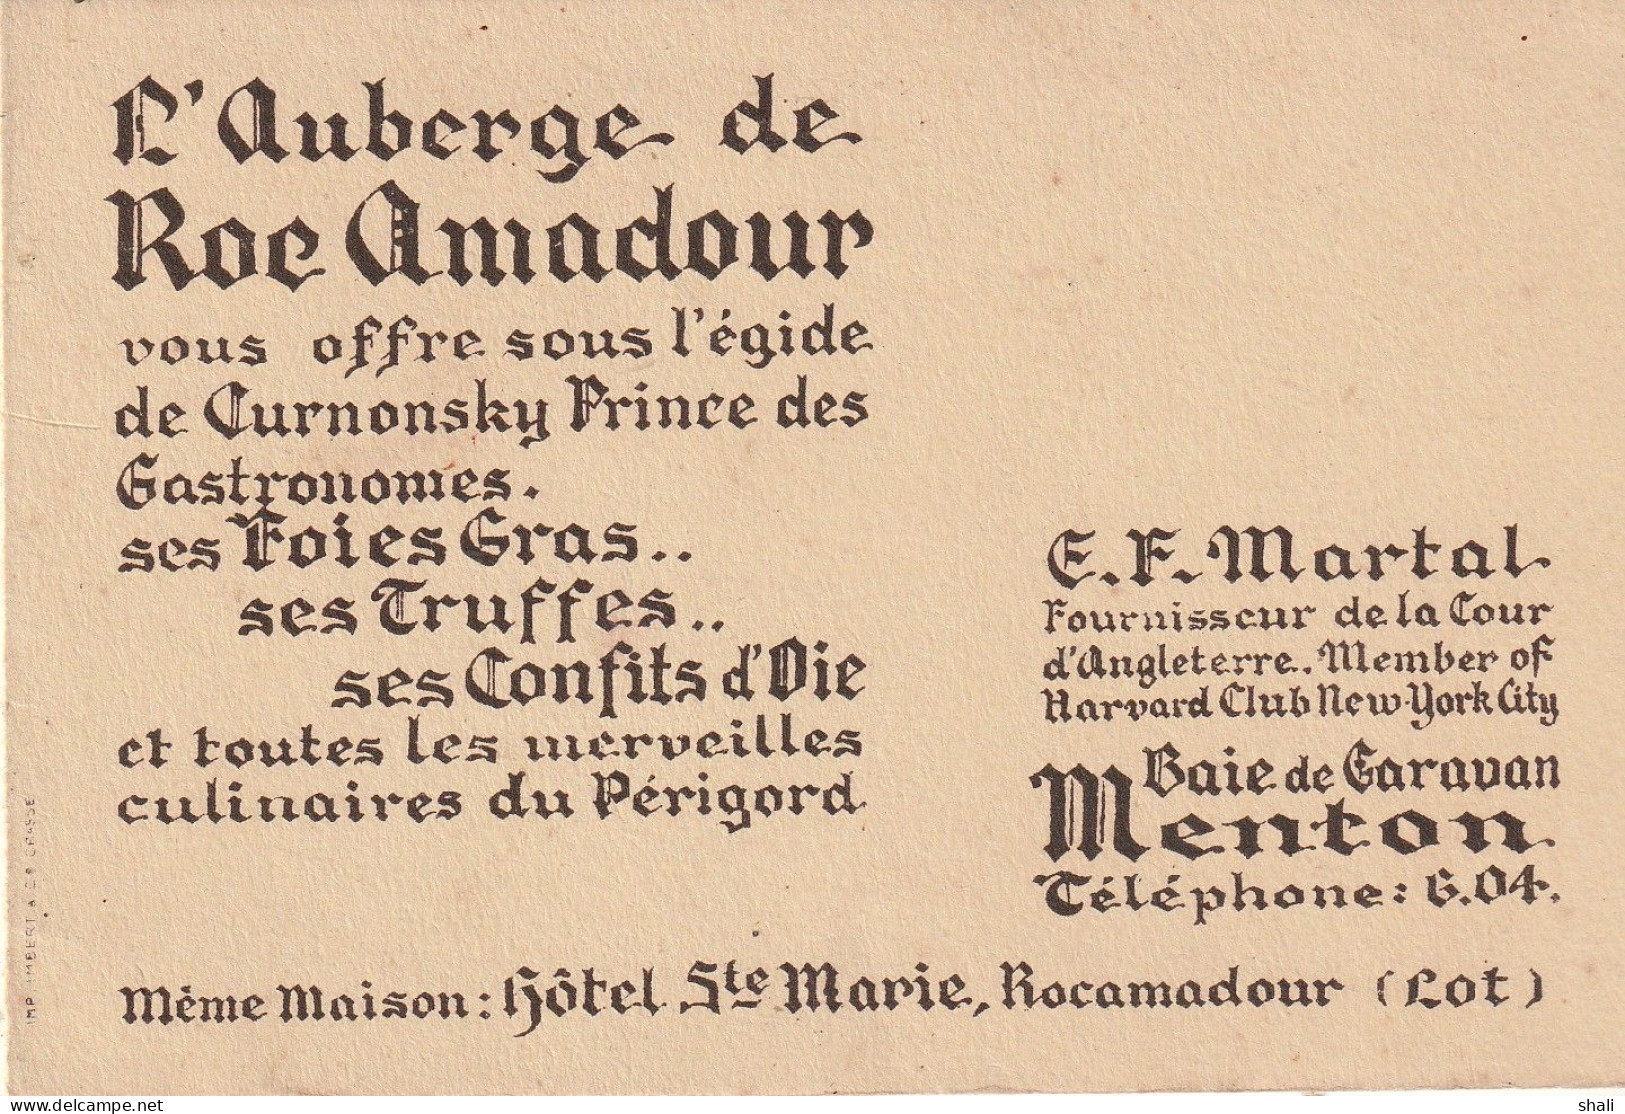 L'Auberge de
Roc Amadour
vous offre sous l'égide
de Curnonsky Prince des
Gastronomes.
ses Foies Gras..
ses Truffes..
ses Confits d'Oie
et toutes les merveilles
culinaires du Périgord
E. F. Martal
Fournisseur de la Cour
d'Angleterre. Member of
Harvard Club New-York City
Baie de Garavan
Menton
Téléphone: 6.04.
Même Maison: Hôtel Ste Marie, Rocamadour (Lot)
IMP. IMBERT & CIE GRASSE
www.delcampe.net
shali